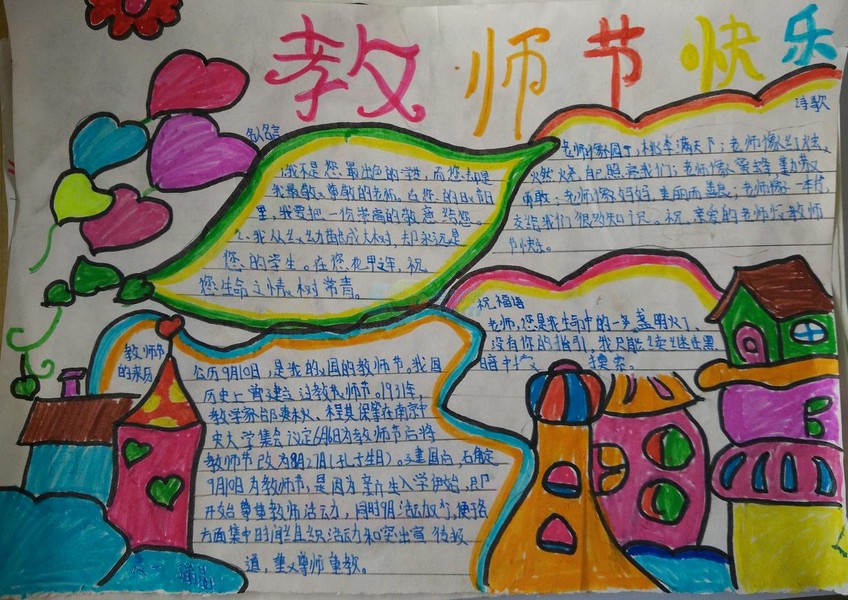 教师节快乐
名言
1、我不是您最出色的学生,而您却是
我最敬、尊敬的老师。在您的日 节日
里,我要把一份崇高的敬意给您。
2、我从幼苗成大树,却永远是
您的学生。在您花甲之年,祝
您生命之情 树常青。
诗歌
老师像园丁,桃李满天下;老师像
燃 自己照亮我们;老师像蜜蜂勤劳又
勇敢;老师像妈妈,美丽而 ;老师像一本书,
交给我们很多知识。祝亲爱的老师们教师
节快乐。
祝福语
老师,您是我生命中的一 盏明灯,
没有你的指引,我只能 迷 黑
暗中 摸索。
教师节
的来历
公历9月10日,是我的 国的教师节。我国
历史上曾建立过教 师节。1931年,
教学家邰爽秋、程其保等在南京中
央大学集会议定6月6日为教师节后将
教师节改为8月27日(孔子生日)。建国后,
9月10日为教师节,是因为新生入学 始,即
开始尊重教师活动,同时9月 活动少,便于各
方面集中时间组织活动和突出宣
道,重 尊师重教。